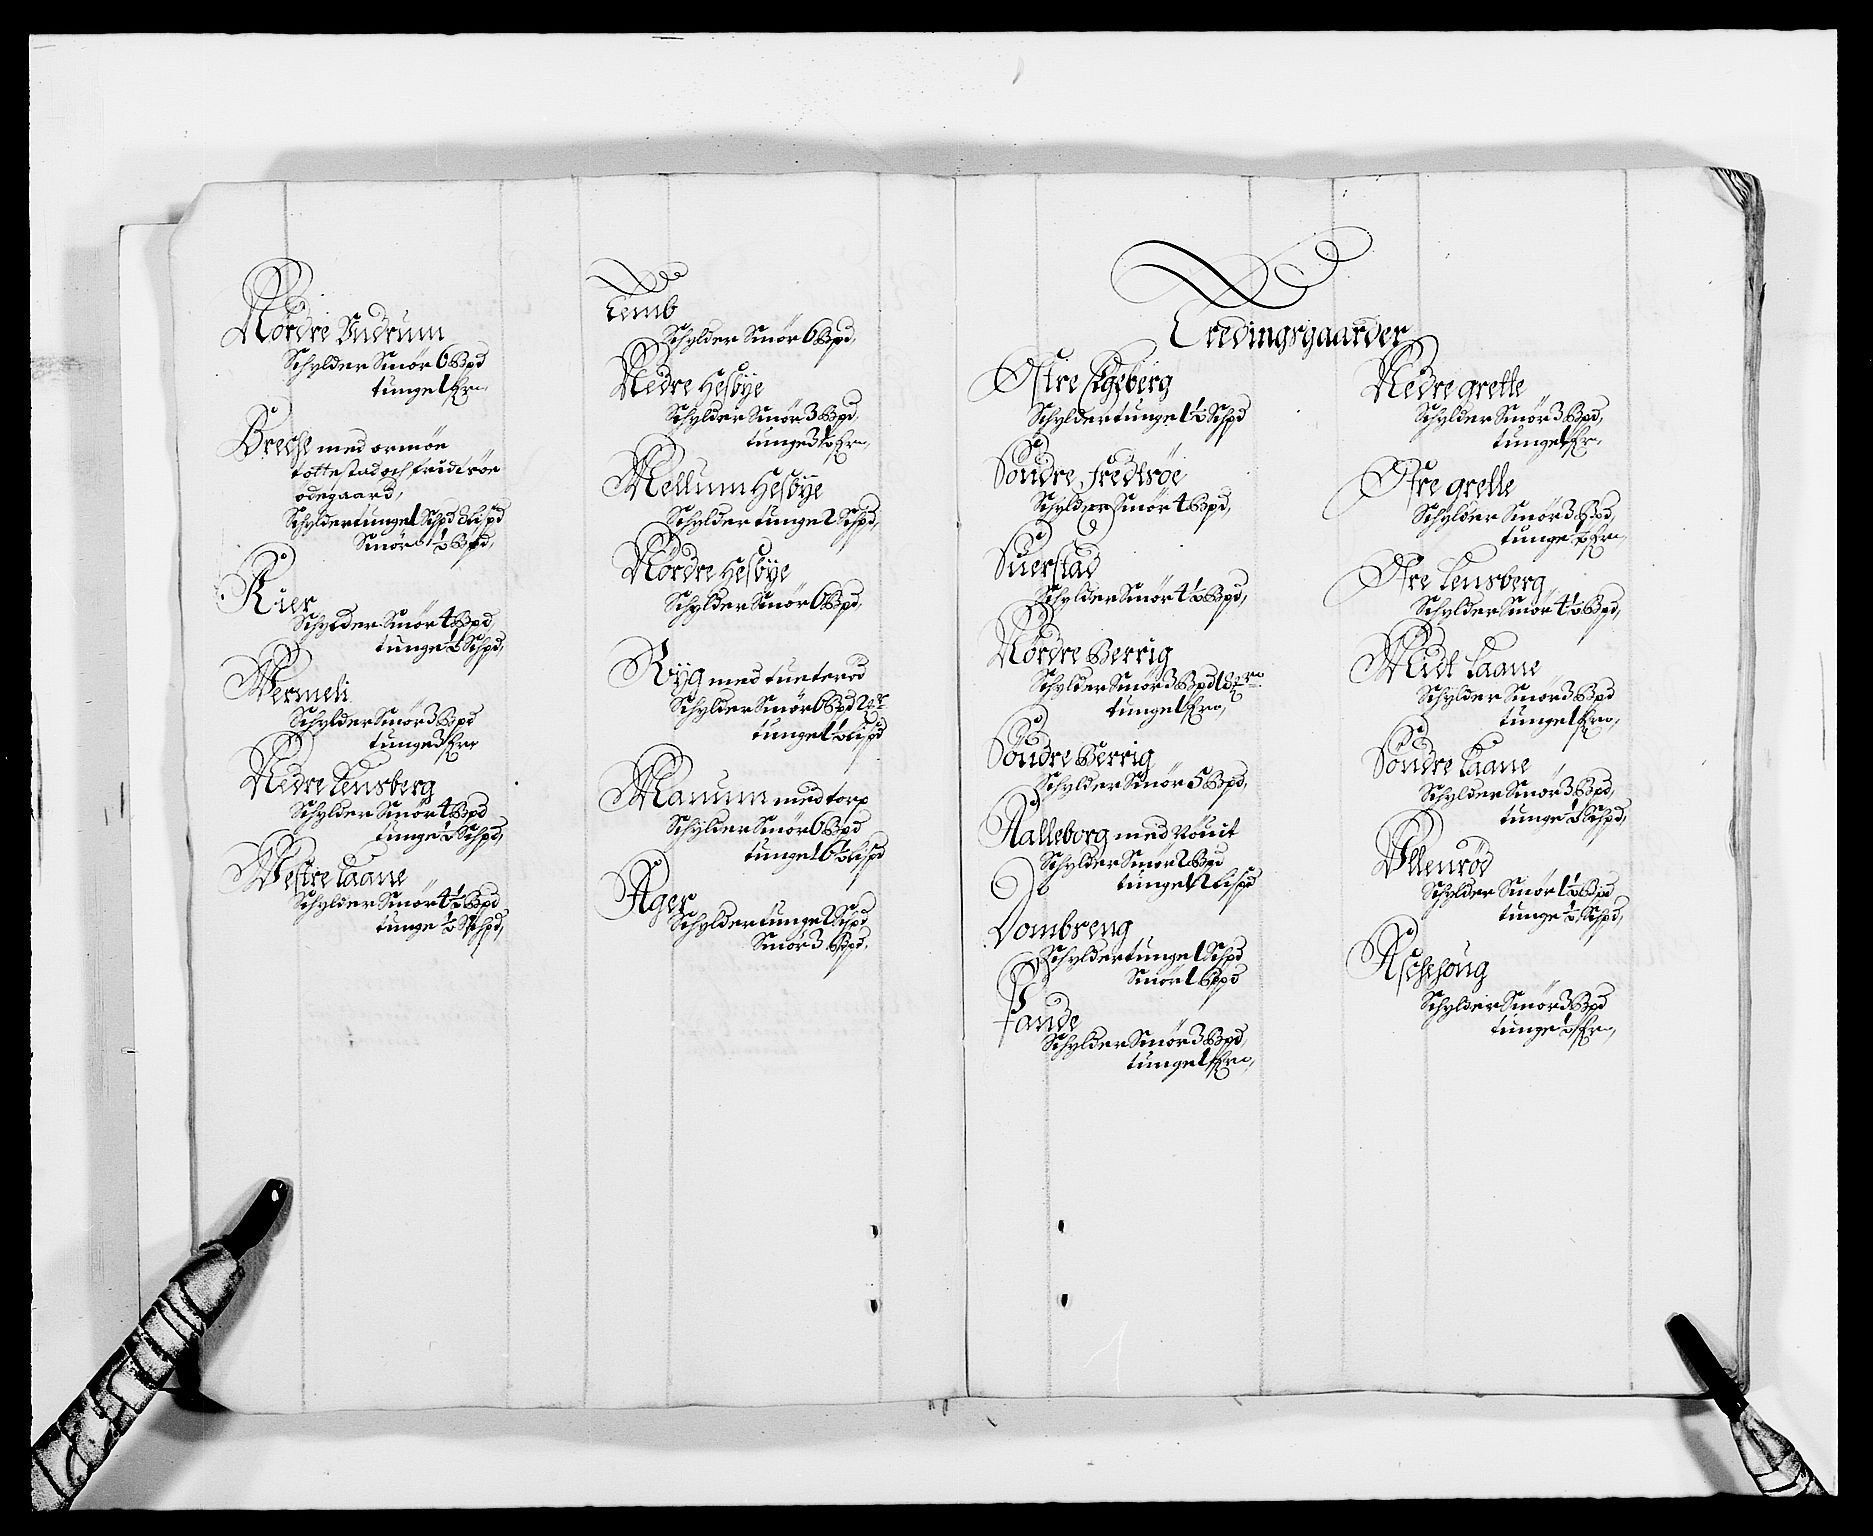 Nørdre Undrum
Schylder Smör 6 Bpd
tunge 1 Fr:,
Breche med ormöe
tottestad och fridtröe
ödegaard,
Schylder tunge 1 Schpd 8 lispd
Smör 1½ Bpd,
Kier
Schylder Smör 4 Bpd,
tunge ½ Schpd,
Wermeli
Schylder Smör 3 Bpd
tunge 3 Fr:
Nedre Lensberg
Schylder Smör 4 Bpd
tunge ½ Schpd,
Westre Laane
Schylder Smör 4½ Bpd
tunge ½ Schpd,
Lemb
Schylder Smör 6 Bpd,
Nedre Hesbÿe
Schylder Smör 3 Bpd,
tunge 3½ Fr:,
Mellum Hesbÿe
Schylder tunge 2 Schpd,
Nordre Hesbÿe
Schylder Smör 6 Bpd,
Rÿg med tueteröd
Schylder Smör 6 Bpd 2
tunge 1½ lispd
Manum med torp
Schÿlder Smör 6 Bpd
tunge 1 6½ lispd
Ager
Schylder tunge 2 Schpd
Smör 3 Bpd,
Tredingsgaarder
Ostre Ageberg
Schylder tunge 1½ Schpd
Söndre fredtröe
Schylder Smör 4 Bpd,
Suerstad
Schylder Smör 4½ Bpd,
Nordre Berrig
Schylder Smör 3 Bpd 18
tunge 1 Fr:,
Söndre Berrig
Schylder Smör 5 Bpd,
Aalleborg med
Schylder Smör 2 Bpd
tunge 12 lispd
Dombreng
Schylder tunge 1 Schpd
Smör 1 Bpd
Fande
Schylder Smör 3 Bpd,
tunge 1 Fr:,
Nedre grette
Schylder Smör 3 Bpd,
tunge 1 Fr:,
Ofre grette
Schylder Smör 3 Bpd,
tunge ½ Fr:,
Ofre Lensberg
Schylder Smör 4½ Bpd,
Midt Laane
Schylder Smör 3 Bpd
tunge 1 Fr:,
Söndre Laane
Schylder Smör 3 Bpd,
tunge ½ Schpd,
Ullenröd
Schylder Smör 1½ Bpd
tunge ½ Schpd,
Aschehoug
Schylder Smör 3 Bpd
tunge ½ Fr:,